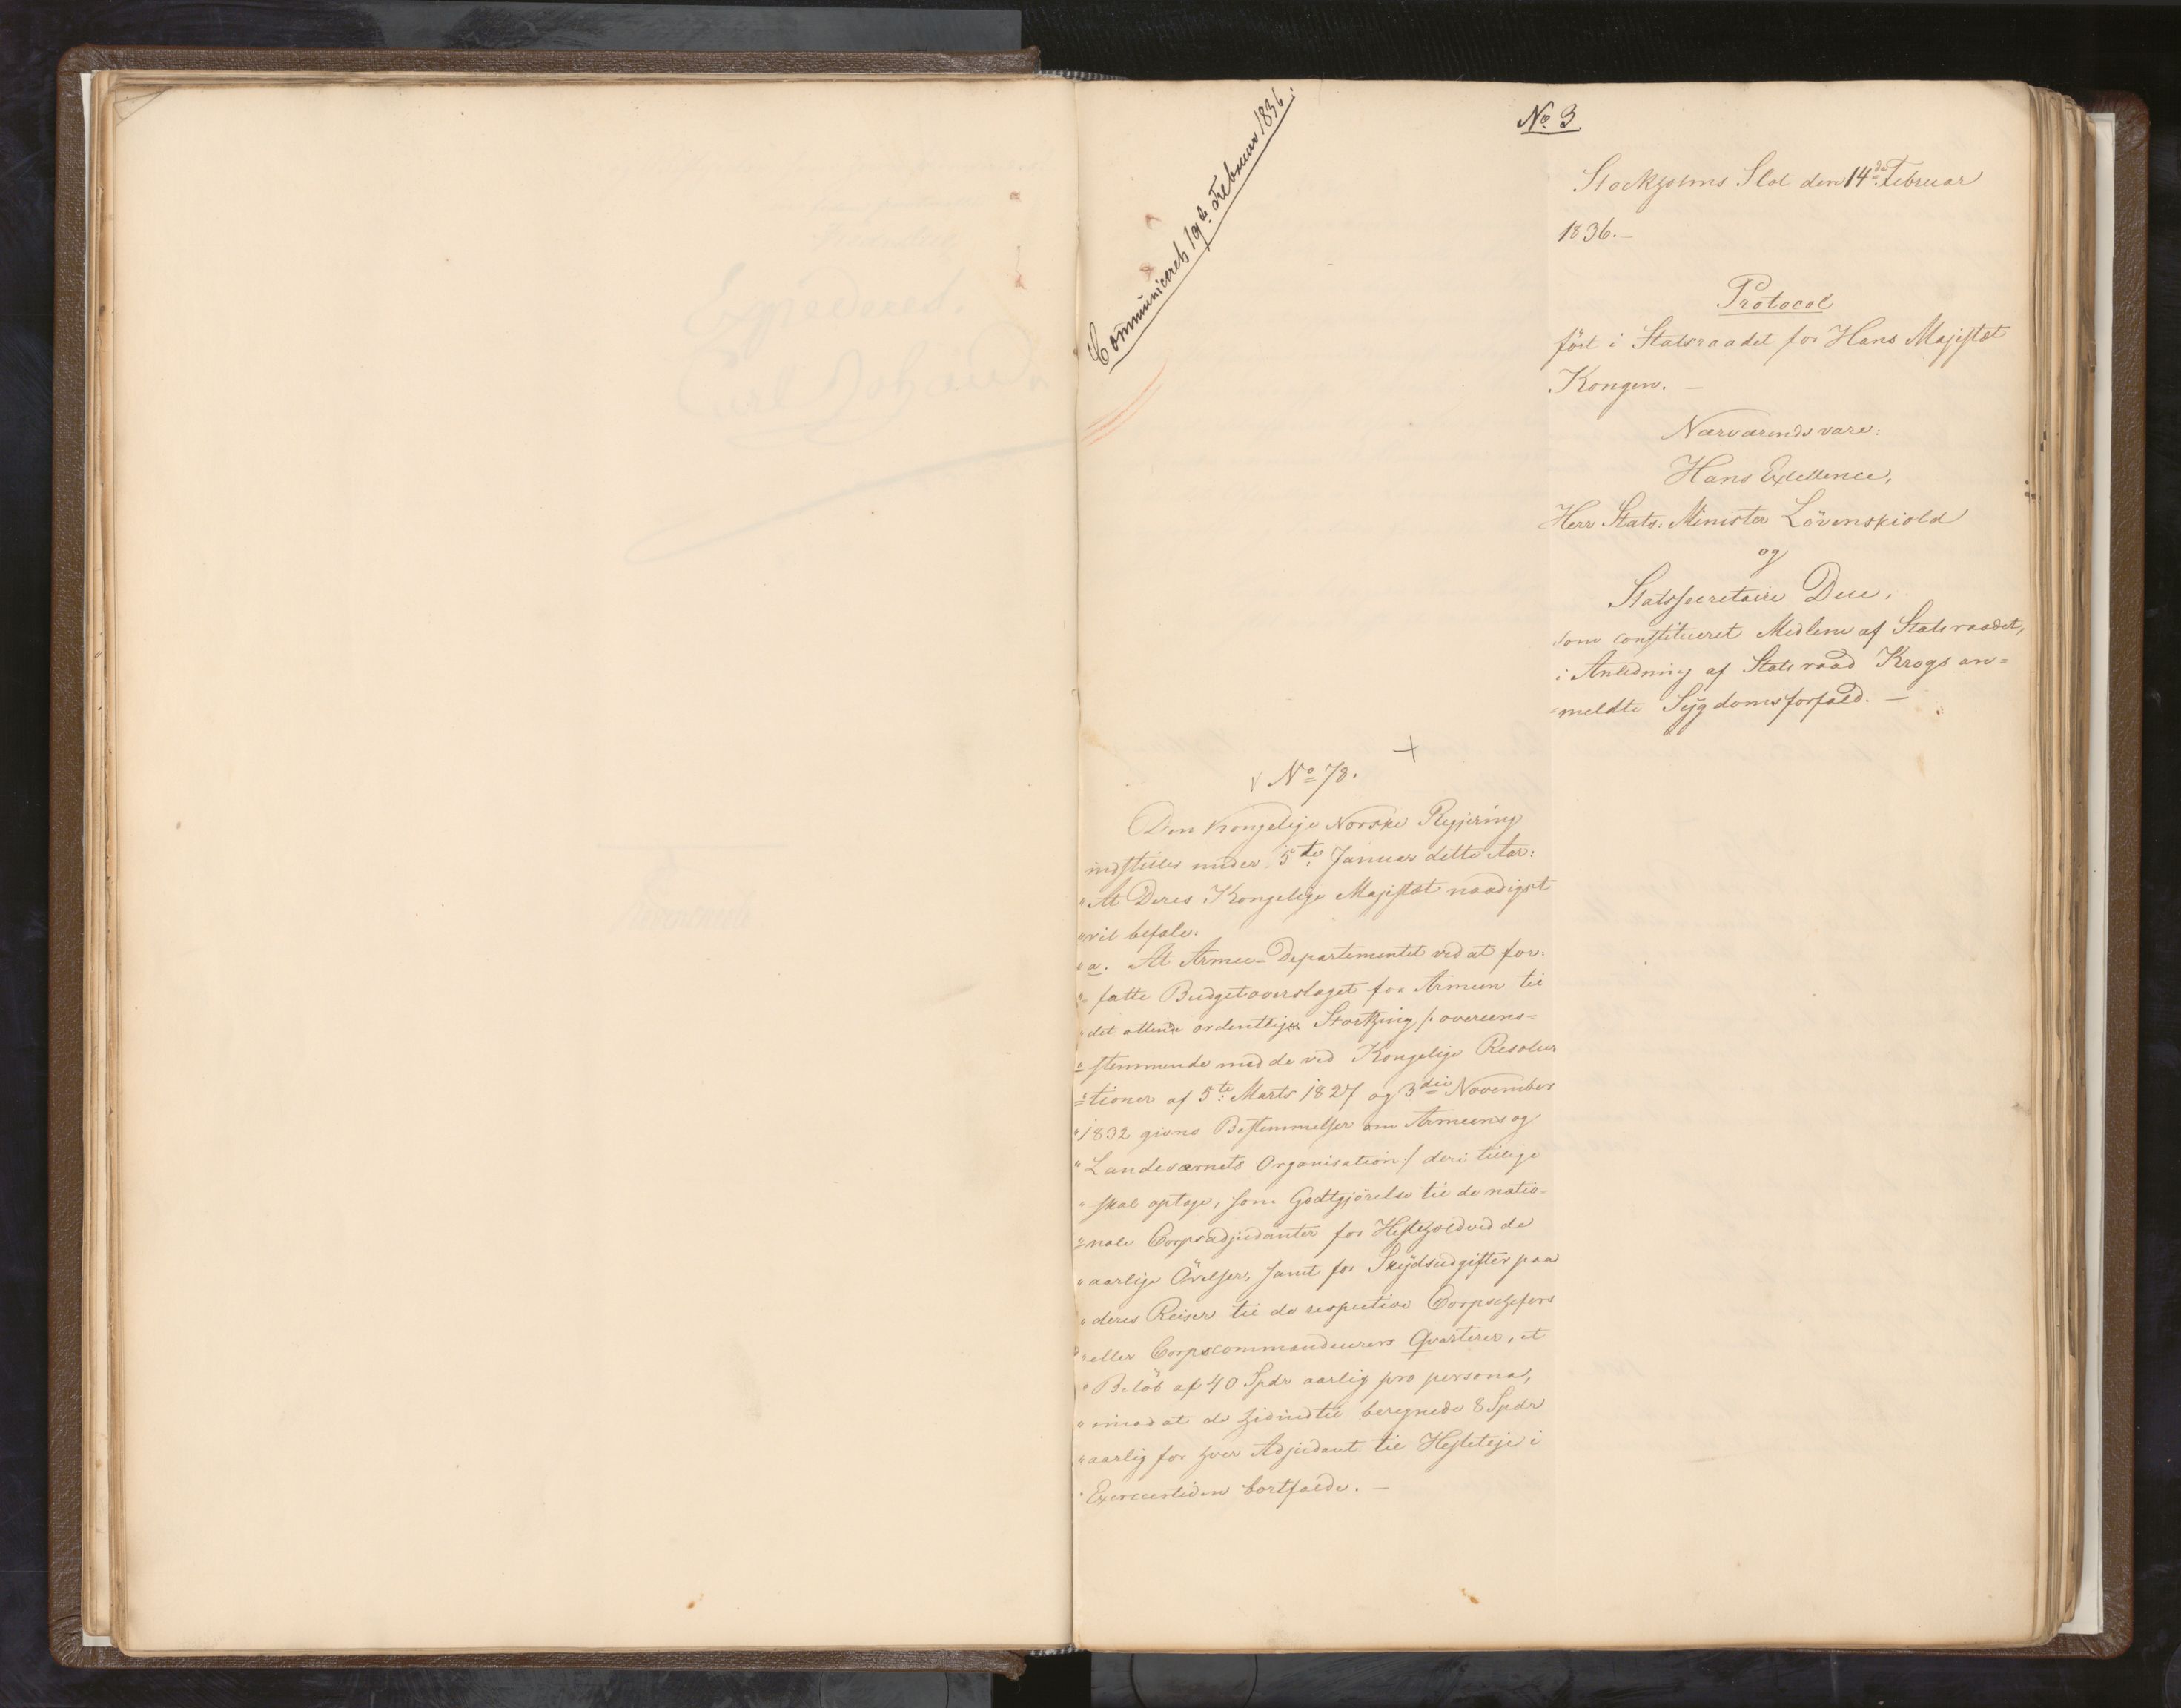 Communiceret 19de Februar 1836.
No. 3.
Stockholms Slot den 14de Februar
1836.—
Protocol
ført i Statsraadet for Hans Majestæt
Kongen. —
Nærværende vare:
Hans Excellence,
Herr Stats-Minister Løvenskiold
og
Statssecretaire Due,
som constitueret Medlem af Statsraadet,
i Anledning af Statsraad Krogs an=
=meldte Sygdomsforfald. —
No 78.
Den Kongelige Norske Regjering
indstiller under 5te Januar dette Aar:
"At Deres Kongelige Majestæt naadigst
"vil befale:
"a. At Armee-Departementet ved at for-
"-fatte Budgetoverslaget for Armeen til
"det ottende ordentlige Storthing /: overeens=
"=stemmende med de ved Kongelige Resolu=
"=tioner af 5te Marts 1827 og 3die November
"1832 givne Bestemmelser om Armeens og
"Landeværnets Organisation :/ deri tillige
"skal optage, som Godtgjørelse til de natio-
"=nale Corpsadjudanter for Hestehold ved de
"aarlige Øvelser, samt for Skydsudgifter paa
"deres Reiser til de respective Corpschefers
"eller Corpscommandeurers Qvarterer, et
"Beløb af 40 Spdr aarlig pro persona,
"imod at de hidindtil beregnede 8 Spdr
"aarlig for hver Adjudant til Hesteleje i
"Exerceertiden bortfalde. —
Expederet.
Carl Johan